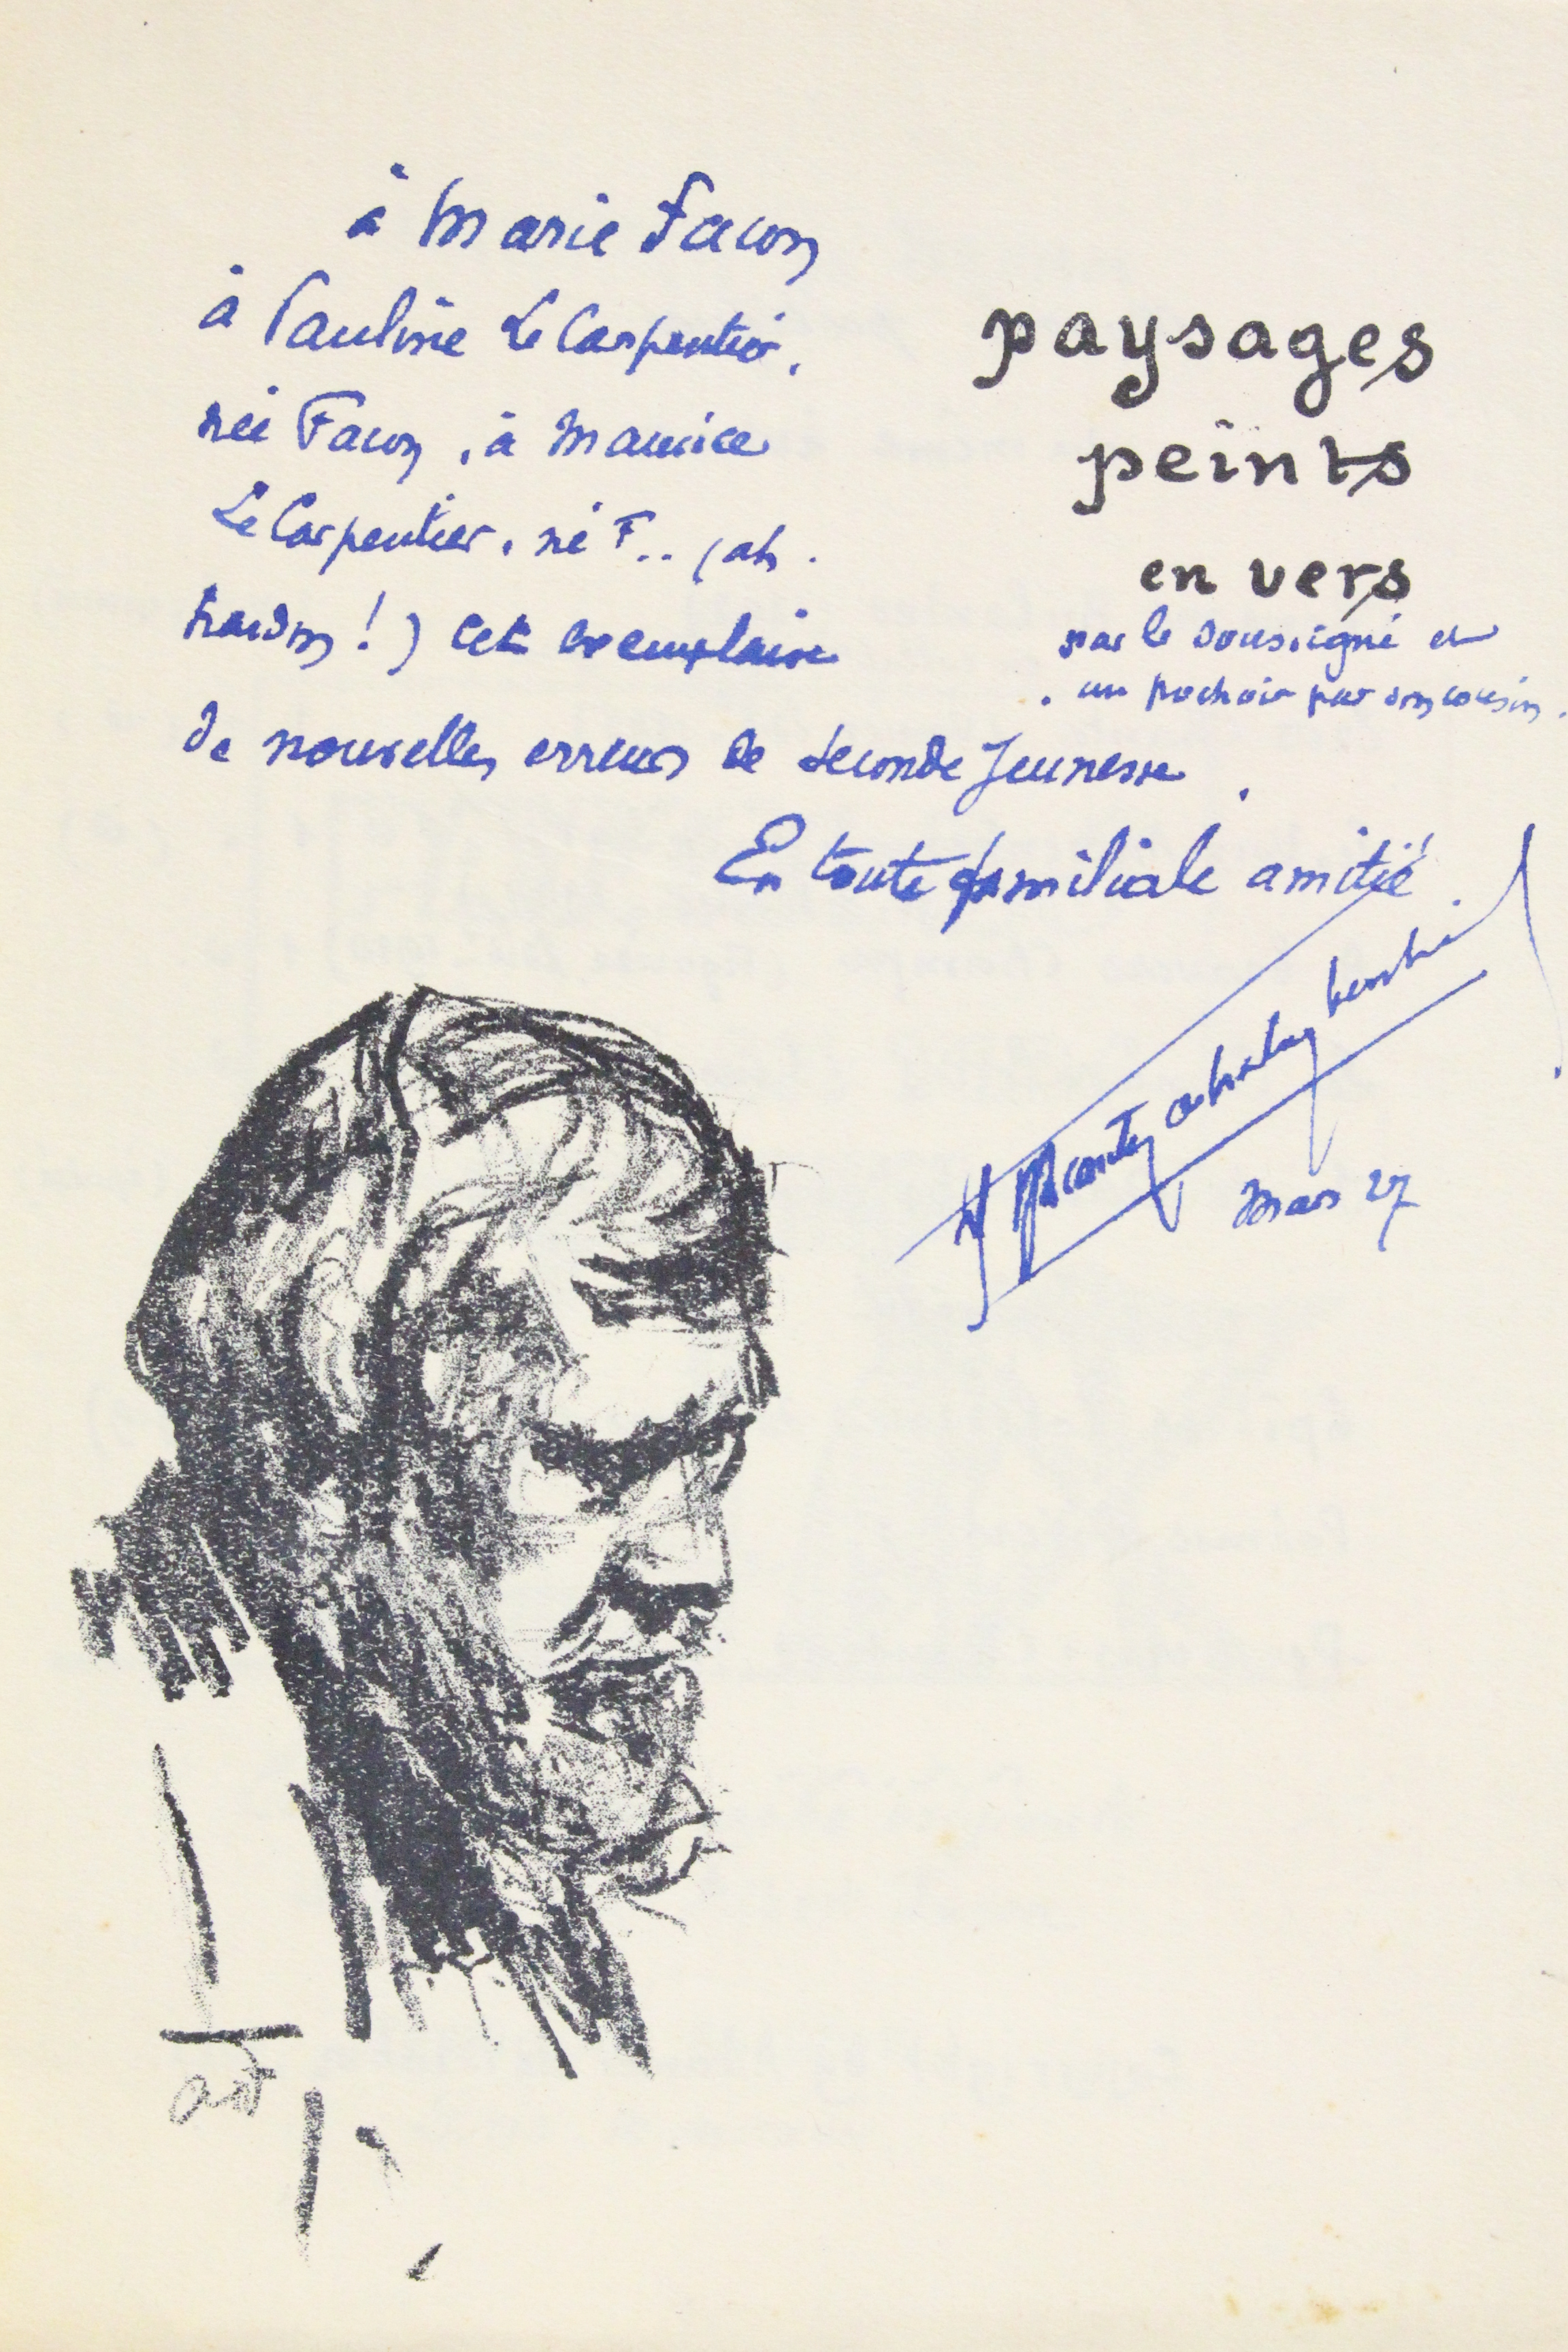 à Marie Facon
à Pauline Le Carpentier,
née Facon, à Maurice
Le Carpentier, né F.. (ah.
pardon!) cet exemplaire
de nouvelles erreurs de seconde Jeunesse.
paysages
peints
en vers
par le soussigné et
un pochoir par son cousin.
En toute familiale amitié.
Mars 27